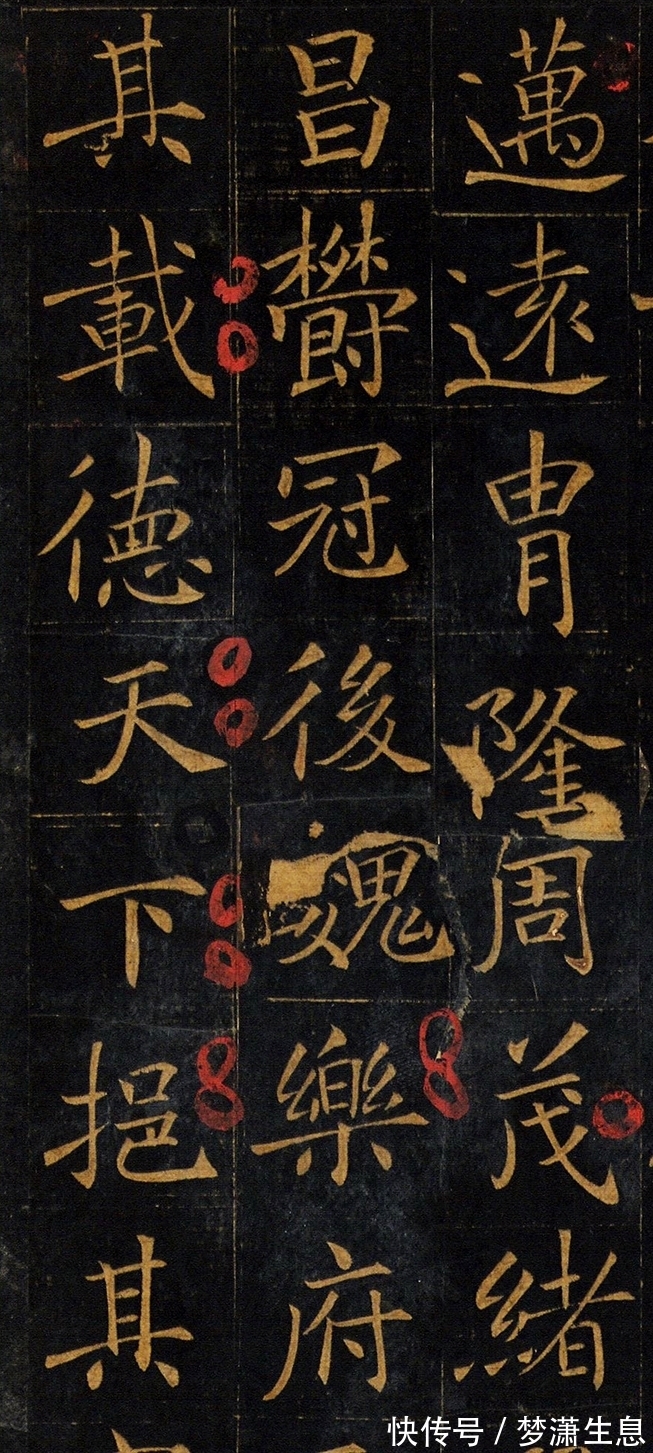 邁遠胄隆周茂緒
昌欝冠後魏樂府
其載德天下挹其
快传号 / 梦潇生息